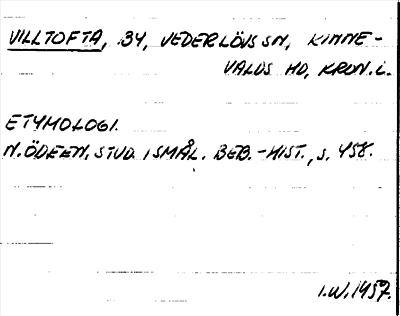 VILLTOFTA, BY, VEDERLÖVS SN, KINNE-
VALDS HD, KRON. L.
ETYMOLOGI.
N. ÖDEEN, STUD. I SMÅL. BEB.-HIST., S. 458.
I.W. 1957.